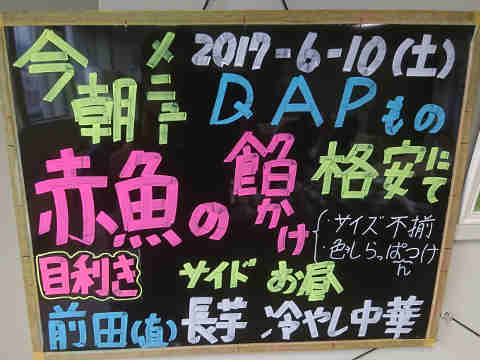 今朝メニュー 2017-6-10(土)
DAPもの
赤魚の餡かけ 格安にて
・サイズ不揃
・色しらっぱつけん
目利き サイド お昼
前田(直) 長芋 冷やし中華